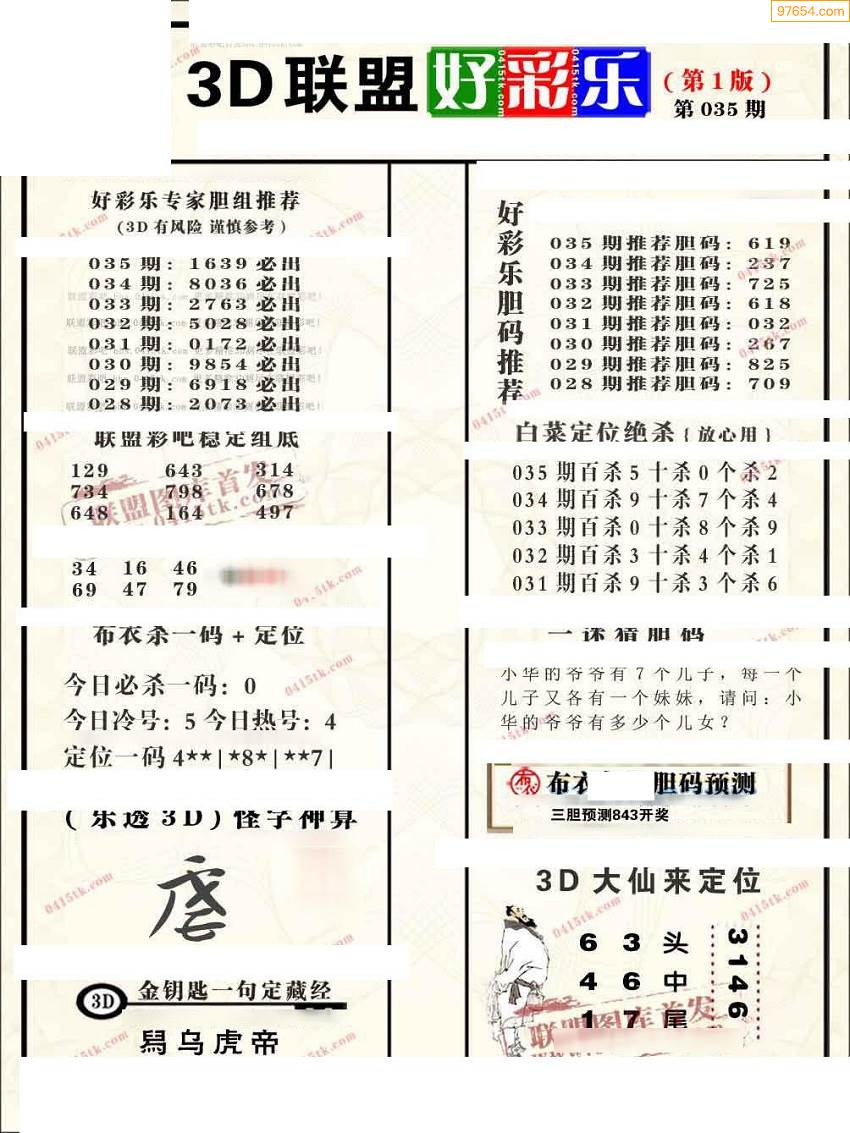 97654.com
3D联盟好彩乐
(第1版)
第035期
好彩乐专家胆组推荐
(3D有风险 谨慎参考)
035期: 1639必出
034期: 8036必出
033期: 2763必出
032期: 5028必出
031期: 0172必出
030期: 9854必出
029期: 6918必出
028期: 2073必出
联盟彩吧稳定组底
129 643 314
734 798 678
648 164 497
34 16 46
69 47 79
布衣杀一码+定位
今日必杀一码: 0
今日冷号: 5 今日热号: 4
定位一码4**|*8*|**7|
(乐透3D)怪字神算
3D 金钥匙一句定藏经
乌虎帝
好彩乐胆码推荐
035期推荐胆码: 619
034期推荐胆码: 237
033期推荐胆码: 725
032期推荐胆码: 618
031期推荐胆码: 032
030期推荐胆码: 267
029期推荐胆码: 825
028期推荐胆码: 709
白菜定位绝杀{放心用}
035期百杀5十杀0个杀2
034期百杀9十杀7个杀4
033期百杀0十杀8个杀9
032期百杀3十杀4个杀1
031期百杀9十杀3个杀6
一迷猜胆码
小华的爷爷有7个儿子，每一个
儿子又各有一个妹妹，请问：小
华的爷爷有多少个儿女？
布衣 胆码预测
三胆预测843开奖
3D大仙来定位
6 3 头
4 6 中
1 7 尾
3146
联盟图库首发
0415tk.com